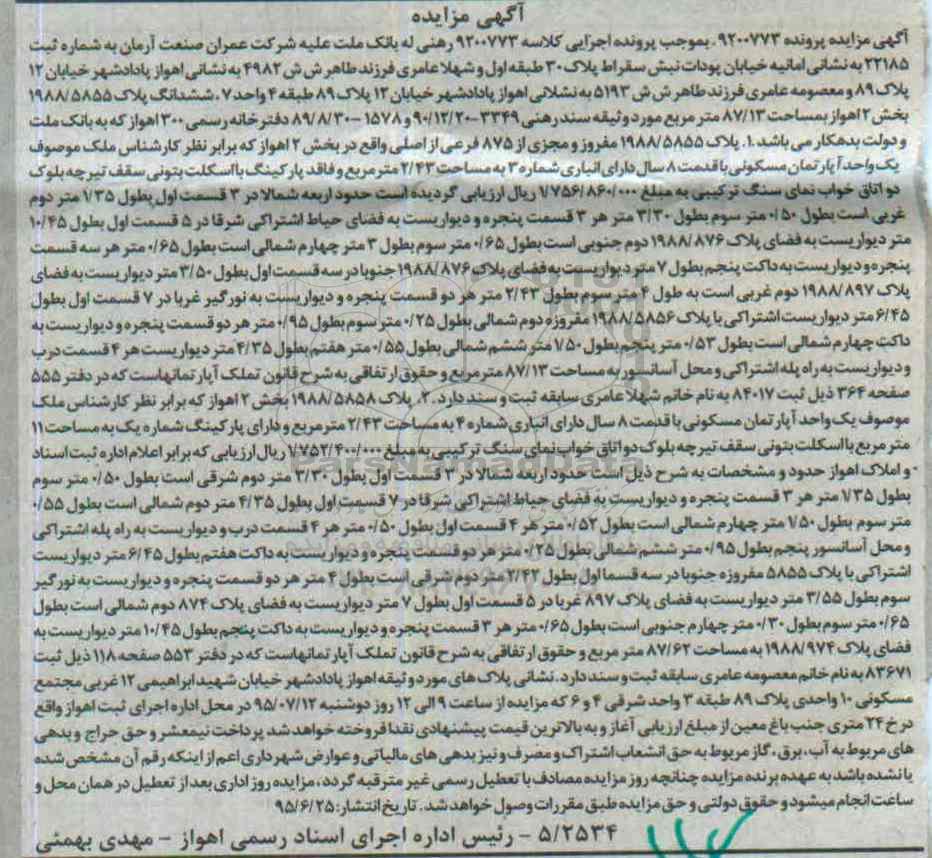 آگهی مزایده
آگهی مزایده پرونده ۹۲۰۰۷۷۳. بموجب پرونده اجرایی کلاسه ۹۲۰۰۷۷۳ رهنی له بانک ملت علیه شرکت عمران صنعت آرمان به شماره ثبت
۲۲۱۸۵ به نشانی امانیه خیابان پودات نبش سقراط پلاک ۳۰ طبقه اول و شهلا عامری فرزند طاهر ش ش ۴۹۸۲ به نشانی اهواز پادادشهر خیابان ۱۲
پلاک ۸۹ و معصومه عامری فرزند طاهر ش ش ۵۱۹۳ به نشلانی اهواز پادادشهر خیابان ۱۲ پلاک ۸۹ طبقه ۴ واحد ۷. ششدانگ پلاک ۱۹۸۸/۵۸۵۵
بخش ۲ اهواز بمساحت ۸۷/۱۳ متر مربع مورد وثیقه سند رهنی ۳۳۴۹-۹۰/۱۲/۲۰ و ۱۵۷۸-۸۹/۸/۳۰ دفترخانه رسمی ۳۰۰ اهواز که به بانک ملت
و دولت بدهکار می باشد.۱. پلاک ۱۹۸۸/۵۸۵۵ مفروز و مجزی از ۸۷۵ فرعی از اصلی واقع در بخش ۲ اهواز که برابر نظر کارشناس ملک موصوف
یک واحد آپارتمان مسکونی با قدمت ۸ سال دارای انباری شماره ۳ به مساحت ۲/۴۳ متر مربع و فاقد پارکینگ با اسکلت بتونی سقف تیرچه بلوک
دو اتاق خواب نمای سنگ ترکیبی به مبلغ ۱/۷۵۶/۸۶۰/۰۰۰ ریال ارزیابی گردیده است حدود اربعه شمالا در ۳ قسمت اول بطول ۱/۳۵ متر دوم
غربی است بطول ۰/۵۰ متر سوم بطول ۳/۳۰ متر هر ۳ قسمت پنجره و دیواریست به فضای حیاط اشتراکی شرقا در ۵ قسمت اول بطول ۱۰/۴۵
متر دیواریست به فضای پلاک ۱۹۸۸/۸۷۶ دوم جنوبی است بطول ۰/۶۵ متر سوم بطول ۳ متر چهارم شمالی است بطول ۰/۶۵ متر هر سه قسمت
پنجره و دیواریست به داکت پنجم بطول ۷ متر دیواریست به فضای پلاک ۱۹۸۸/۸۷۶ جنوبا در سه قسمت اول بطول ۳/۵۰ متر دیواریست به فضای
پلاک ۱۹۸۸/۸۹۷ دوم غربی است به طول ۴ متر سوم بطول ۲/۴۳ متر هر دو قسمت پنجره و دیواریست به نورگیر غربا در ۷ قسمت اول بطول
۶/۴۵ متر دیواریست اشتراکی با پلاک ۱۹۸۸/۵۸۵۶ مفروزه دوم شمالی بطول ۰/۲۵ متر سوم بطول ۰/۹۵ متر هر دو قسمت پنجره و دیواریست به
داکت چهارم شمالی است بطول ۰/۵۳ متر پنجم بطول ۱/۵۰ متر ششم شمالی بطول ۰/۵۵ متر هفتم بطول ۴/۳۵ متر دیواریست هر ۴ قسمت درب
و دیواریست به راه پله اشتراکی و محل آسانسور به مساحت ۸۷/۱۳ متر مربع و حقوق ارتفاقی به شرح قانون تملک آپارتمانهاست که در دفتر ۵۵۵
صفحه ۳۶۴ ذیل ثبت ۸۴۰۱۷ به نام خانم شهلا عامری سابقه ثبت و سند دارد. ۲. پلاک ۱۹۸۸/۵۸۵۸ بخش ۲ اهواز که برابر نظر کارشناس ملک
موصوف یک واحد آپارتمان مسکونی با قدمت ۸ سال دارای انباری شماره ۴ به مساحت ۲/۴۳ متر مربع و دارای پارکینگ شماره یک به مساحت ۱۱
متر مربع با اسکلت بتونی سقف تیرچه بلوک دو اتاق خواب نمای سنگ ترکیبی به مبلغ ۱/۷۵۲/۴۰۰/۰۰۰ ریال ارزیابی که برابر اعلام اداره ثبت اسناد
و املاک اهواز حدود و مشخصات به شرح ذیل است حدود اربعه شمالا در ۳ قسمت اول بطول ۳/۳۰ متر دوم شرقی است بطول ۰/۵۰ متر سوم
بطول ۱/۳۵ متر هر ۳ قسمت پنجره و دیواریست به فضای حیاط اشتراکی شرقا در ۷ قسمت اول بطول ۴/۳۵ متر دوم شمالی است بطول ۰/۵۵
متر سوم بطول ۱/۵۰ متر چهارم شمالی است بطول ۰/۵۲ متر هر ۴ قسمت اول بطول ۰/۵۰ متر هر ۴ قسمت درب و دیواریست به راه پله اشتراکی
و محل آسانسور پنجم بطول ۰/۹۵ متر ششم شمالی بطول ۰/۲۵ متر هر دو قسمت پنجره و دیواریست به داکت هفتم بطول ۶/۴۵ متر دیواریست
اشتراکی با پلاک ۵۸۵۵ مفروزه جنوبا در سه قسما اول بطول ۲/۴۲ متر دوم شرقی است بطول ۴ متر هر دو قسمت پنجره و دیواریست به نورگیر
سوم بطول ۳/۵۵ متر دیواریست به فضای پلاک ۸۹۷ غربا در ۵ قسمت اول بطول ۷ متر دیواریست به فضای پلاک ۸۷۴ دوم شمالی است بطول
۰/۶۵ متر سوم بطول ۰/۳۰ متر چهارم جنوبی است بطول ۰/۶۵ متر هر ۳ قسمت پنجره و دیواریست به داکت پنجم بطول ۱۰/۴۵ متر دیواریست به
فضای پلاک ۱۹۸۸/۹۷۴ به مساحت ۸۷/۶۲ متر مربع و حقوق ارتفاقی به شرح قانون تملک آپارتمانهاست که در دفتر ۵۵۳ صفحه ۱۱۸ ذیل ثبت
۸۳۶۷۱ به نام خانم معصومه عامری سابقه ثبت و سند دارد. نشانی پلاک های مورد وثیقه اهواز پادادشهر خیابان شهید ابراهیمی ۱۲ غربی مجتمع
مسکونی ۱۰ واحدی پلاک ۸۹ طبقه ۳ واحد شرقی ۴ و ۶ که مزایده از ساعت ۹ الی ۱۲ روز دوشنبه ۹۵/۰۷/۱۲ در محل اداره اجرای ثبت اهواز واقع
در خ ۲۴ متری جنب باغ معین از مبلغ ارزیابی آغاز و به بالاترین قیمت پیشنهادی نقدا فروخته خواهد شد پرداخت نیمعشر و حق حراج و بدهی
های مربوط به آب، برق، گاز مربوط به حق انشعاب اشتراک و مصرف و نیز بدهی های مالیاتی و عوارض شهرداری اعم از اینکه رقم آن مشخص شده
یا نشده باشد به عهده برنده مزایده چنانچه روز مزایده مصادف با تعطیل رسمی غیر مترقبه گردد، مزایده روز اداری بعد از تعطیل در همان محل و
ساعت انجام میشود و حقوق دولتی و حق مزایده طبق مقررات وصول خواهد شد. تاریخ انتشار: ۹۵/۶/۲۵
۵/۲۵۳۴ - رئیس اداره اجرای اسناد رسمی اهواز - مهدی بهمئی